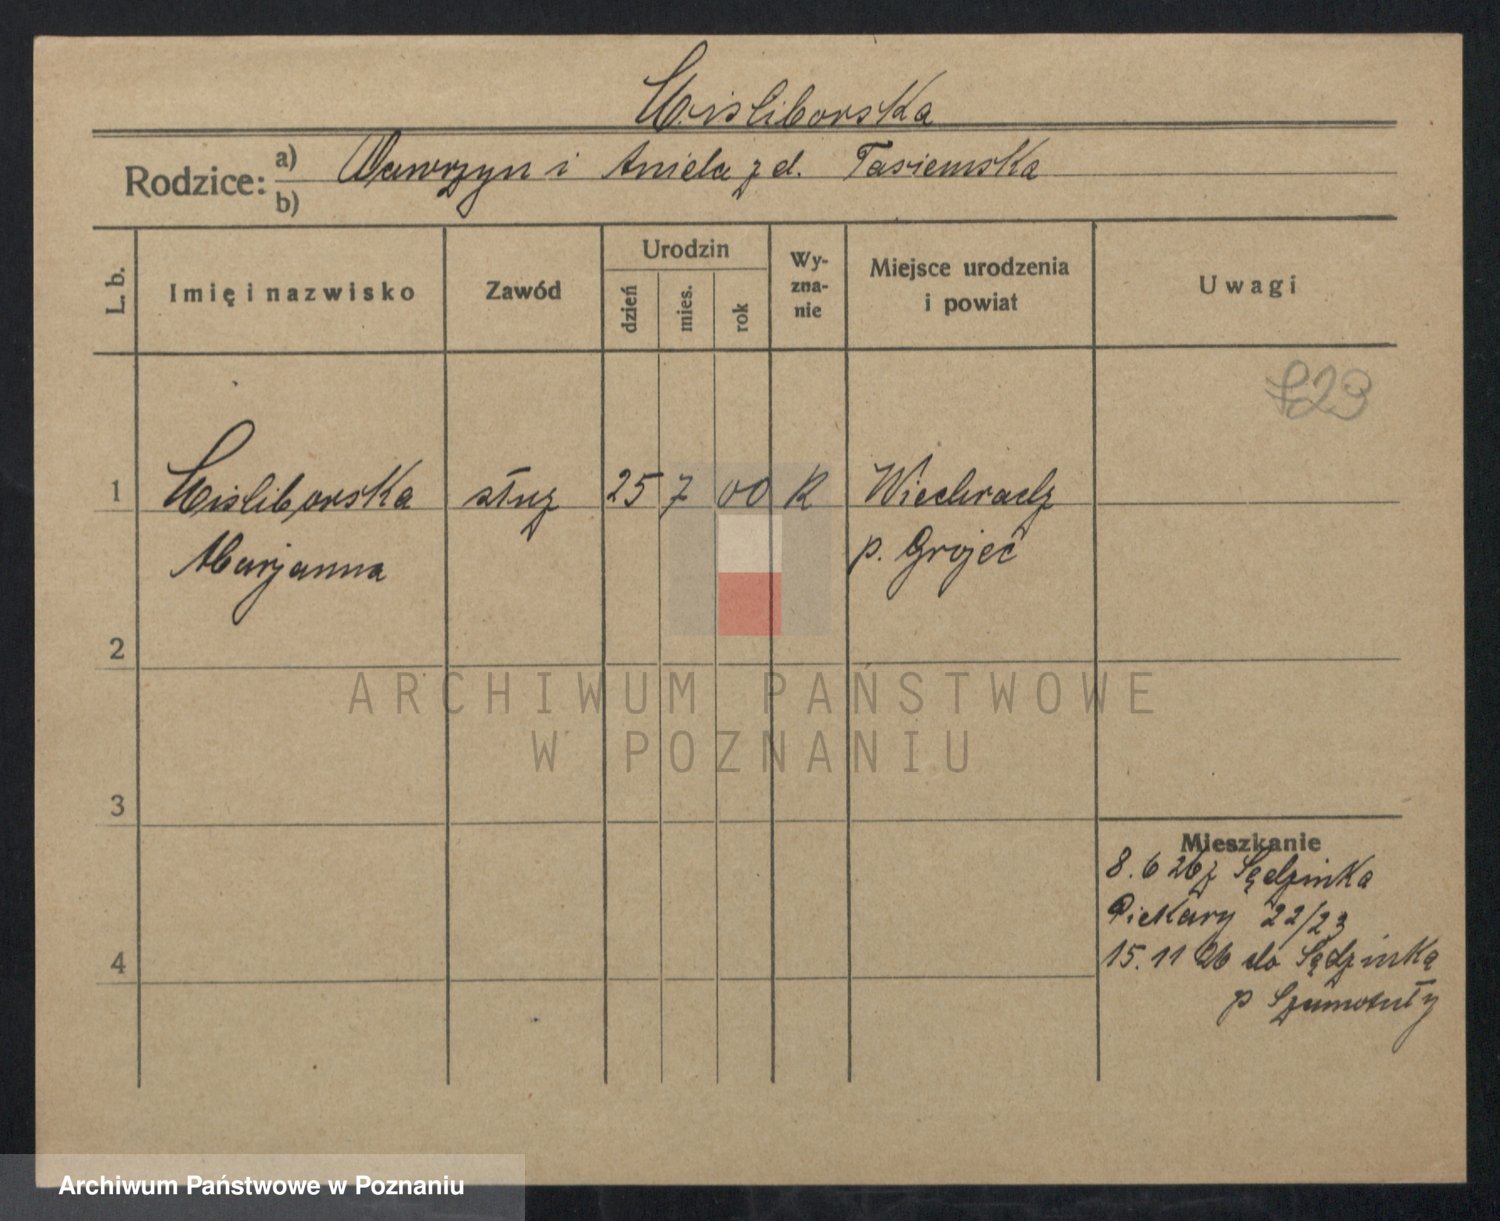 Misliborska
Rodzice: a) Wawrzyn i Aniela z d. Tasiemska
b)
L. b.
Imię i nazwisko
Zawód
Urodzin
dzień
mies.
rok
Wy-
zna-
nie
Miejsce urodzenia
i powiat
Uwagi
1
Misliborska służ 25 7 00 K
Marjanna
p. Grojec
2
3
4
Mieszkanie
8.6 26 z Sędzinka
Piekary 22/23
15.11 26 do Sędzinka
p Szamotuły
ARCHIWUM PAŃSTWOWE
W POZNANIU
Archiwum Państwowe w Poznaniu